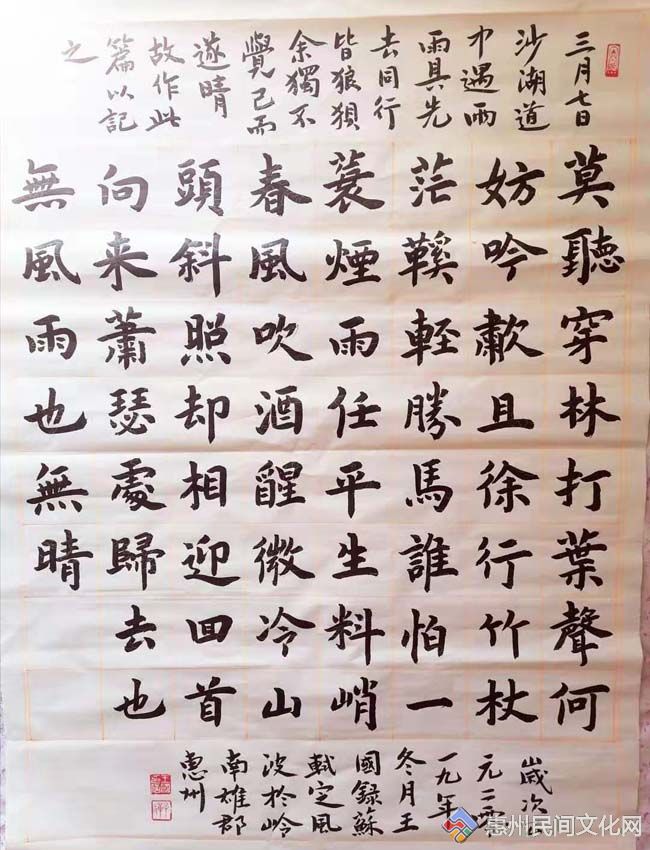 三月七日
沙湖道
中遇雨
雨具先
去同行
皆狼狽
余獨不
覺已而
遂晴
故作此
篇以記
之
莫聽穿林打葉聲何
妨吟歗且徐行竹杖
茫鞵輕勝馬誰怕一
蓑煙雨任平生料峭
春風吹酒醒微冷山
頭斜照却相迎回首
向来蕭瑟處歸去也
無風雨也無晴
歲次公
元二零
一九年
冬月王
國録蘇
軾定風
波於岭
南雄郡
惠州
惠州民间文化网